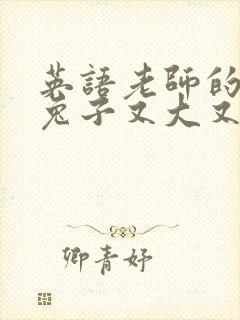 英語老師的
兔子又大又
卿青妤